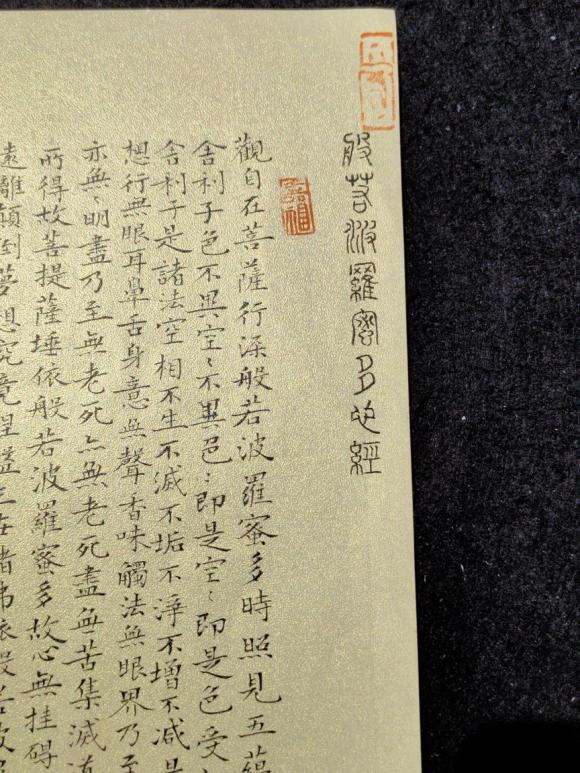 般若波羅蜜多心經
觀自在菩薩行深般若波羅蜜多時照見五蘊
舍利子色不異空〻不異色〻即是空〻即是色受
舍利子是諸法空相不生不滅不垢不淨不增不減是
想行無眼耳鼻舌身意無聲香味觸法無眼界乃至
亦無〻明盡乃至無老死亦無老死盡無苦集滅道
所得故菩提薩埵依般若波羅蜜多故心無挂碍
遠離顛倒夢想究竟涅槃三世諸佛依般若波